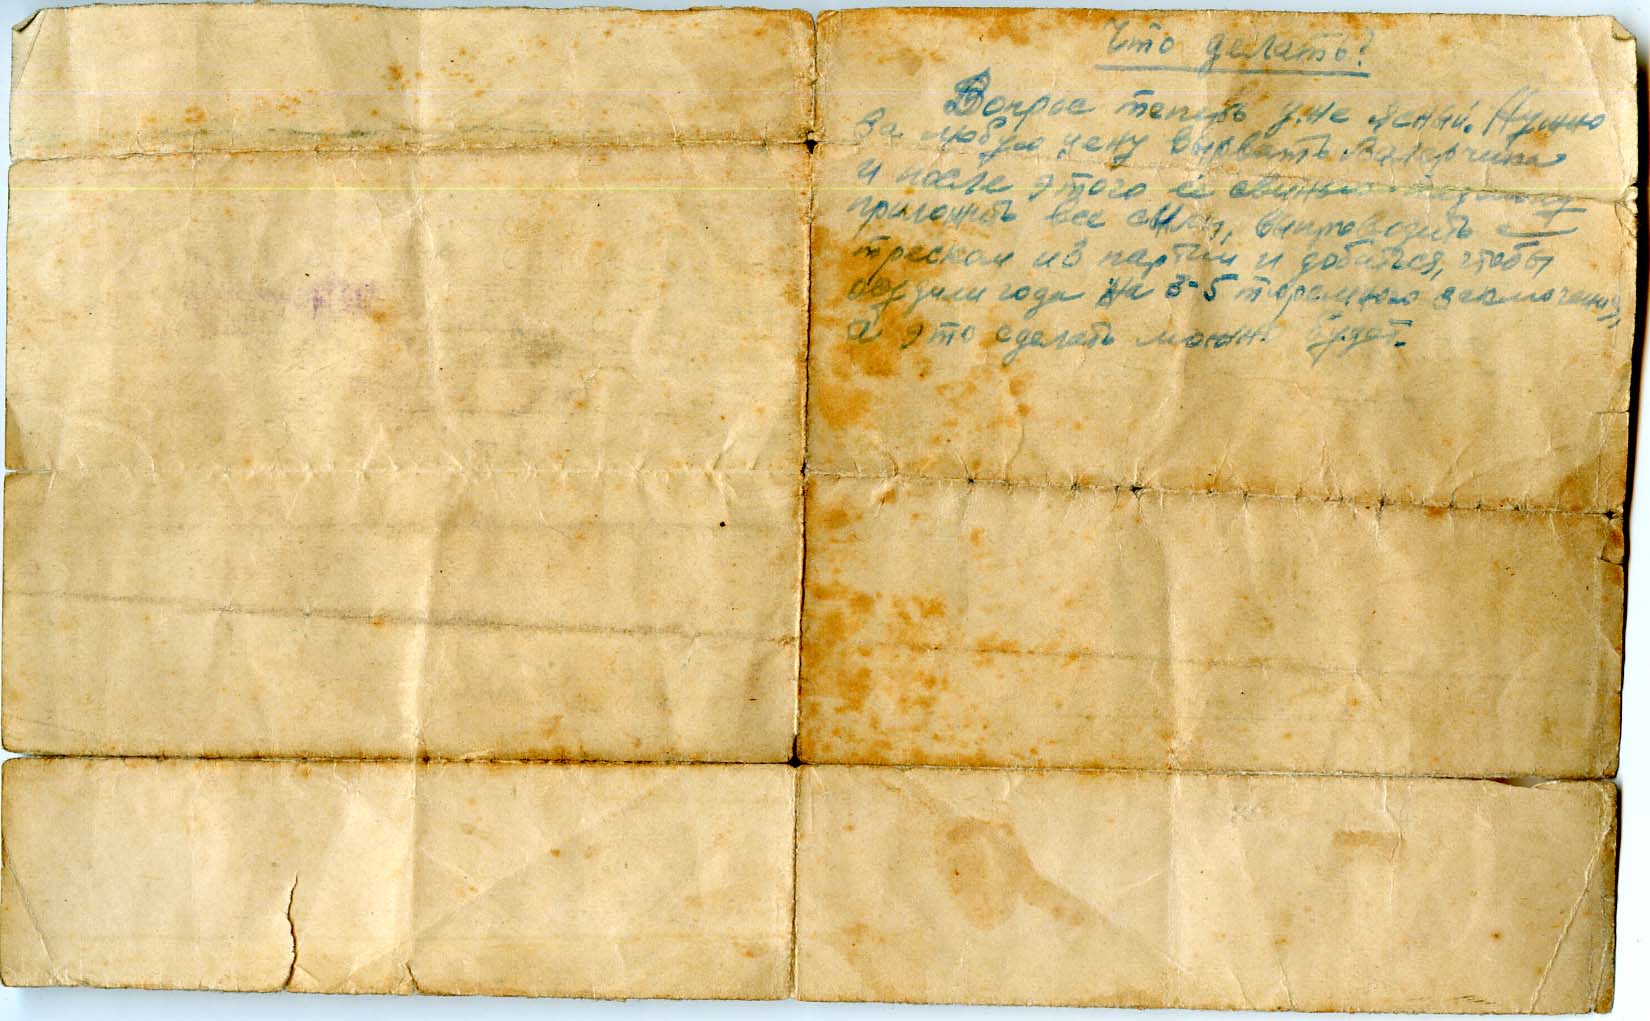 Что делать?
Вопрос теперь уже ясный. Нужно
За любую цену вырвать Валерчика
и после этого её свинью
приложить все силы, выпроводить с
треском из партии и добиться, чтобы
осудили года на 3-5 тюремного заключения,
а это сделать можно будет.